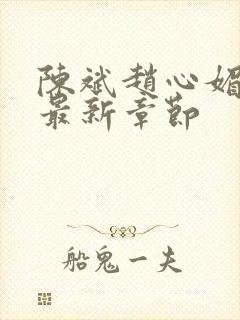 陳斌趙心媚
最新章節
船鬼一夫